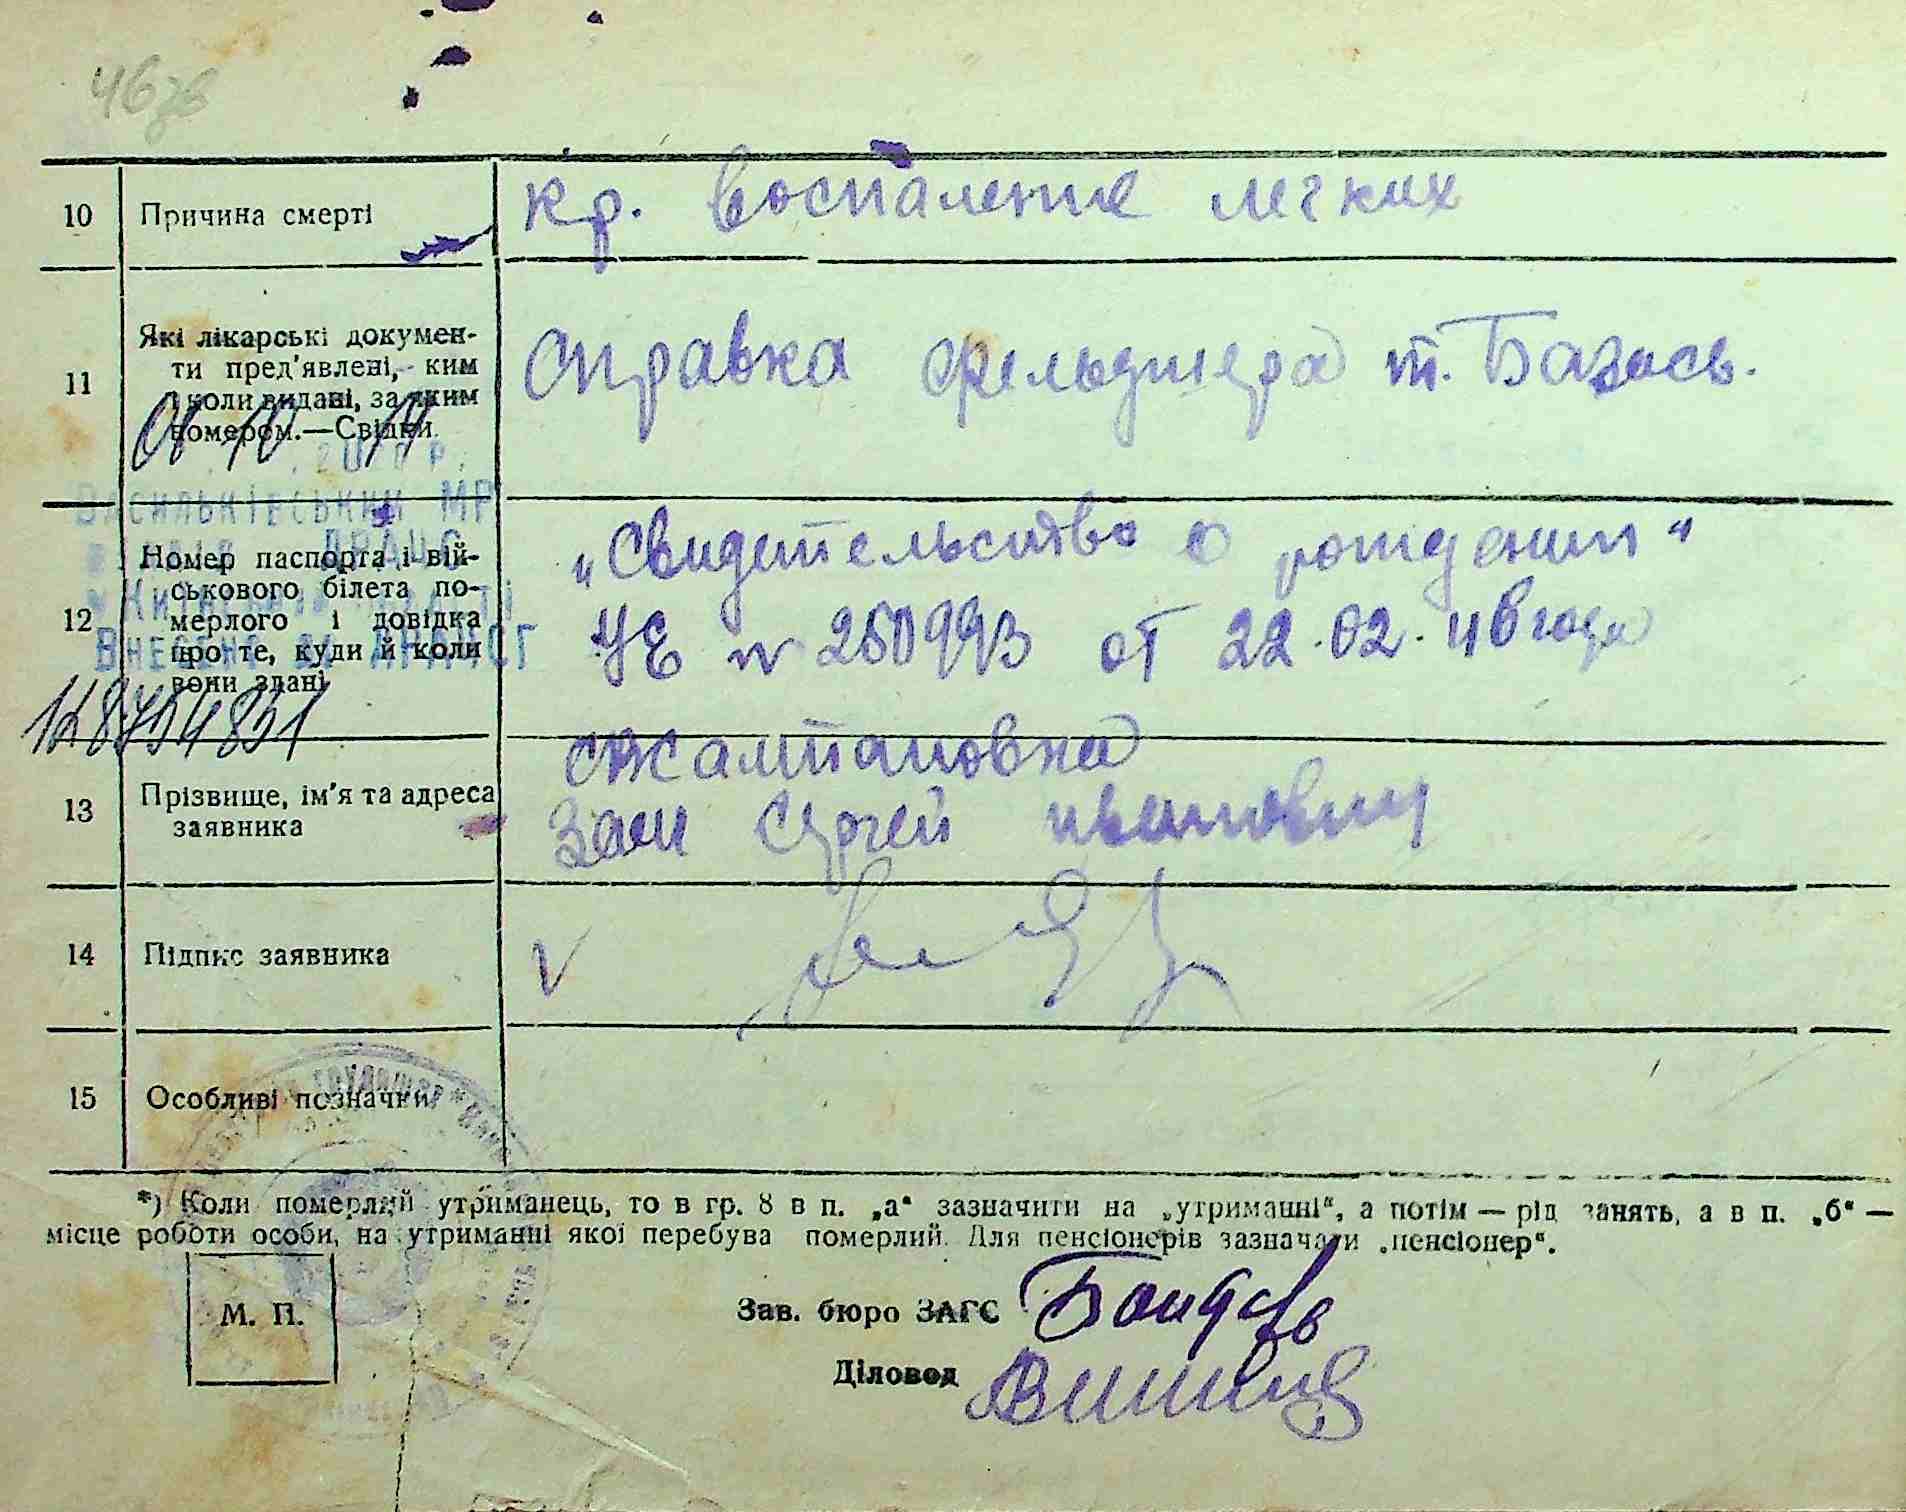 10 Причина смерті кр. воспаление легких
11 Які лікарські докумен-
ти пред'явлені, ким
і коли видані, за яким
номером.—Свідки
справка фельдшера т.
ВАСИЛЬКІВСЬКИЙ МР
ДРАЦС
12 Номер паспорта і вій-
ськового білета по-
мерлого і довідка
про те, куди й коли
вони здані
„Свидетельство о рождении“
УЕ № 250993 от 22.02.46 года
ВНЕСЕНО ДО ДРАЦСГ
13 Прізвище, ім'я та адреса
заявника
Заец Сергей Иванович
14 Підпис заявника V
15 Особливі позначки
*) Коли померлий утриманець, то в гр. 8 в п. „а“ зазначити на „утриманні“, а потім — рід занять, а в п. „б“ —
місце роботи особи, на утриманні якої перебува померлий. Для пенсіонерів зазначати „пенсіонер“.
М. П.
Зав. бюро ЗАГС
Діловод